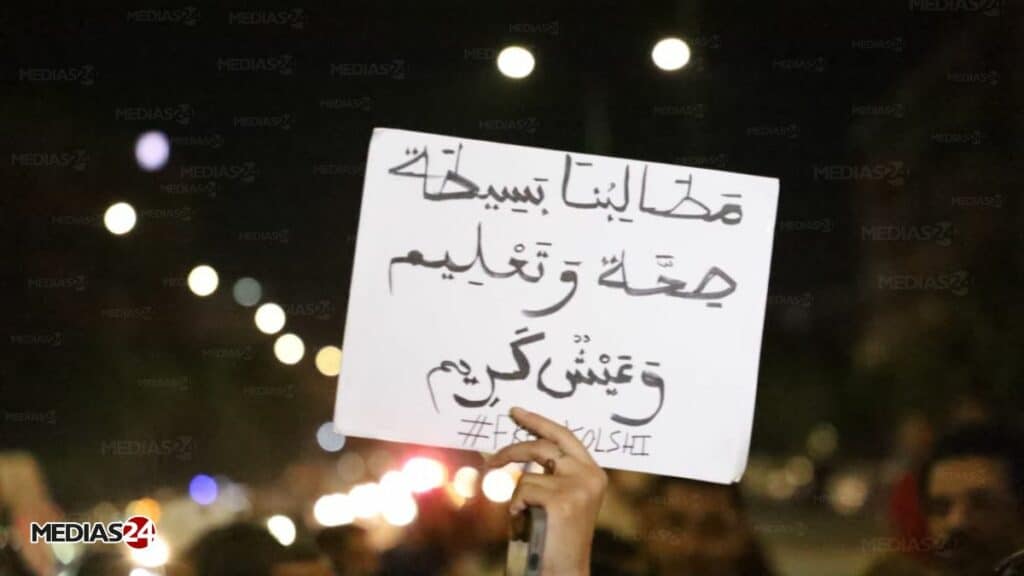 مَطَالِبُنَا بَسِيطَة
صِحَّة وَتَعْلِيم
وَعَيْشٌ كَرِيم
MEDIAS24